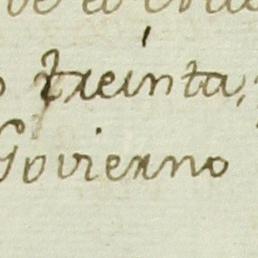 treinta,
Govierno